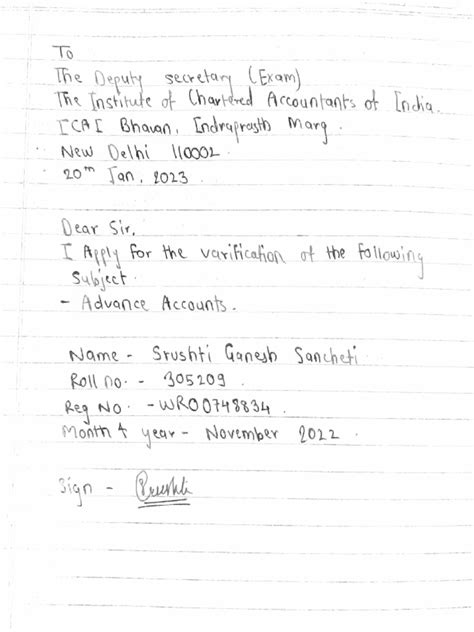 To
The Deputy secretary (Exam)
The Institute of Chartered Accountants of India.
ICAI Bhavan, Indraprasth Marg.
New Delhi 110002.
20th Jan, 2023
Dear Sir,
I Apply for the varification of the following
Subject.
- Advance Accounts.
Name - Srushti Ganesh Sancheti
Roll no. - 305209
Reg No. - WRO0748834.
Month & year - November 2022.
Sign - Srushti